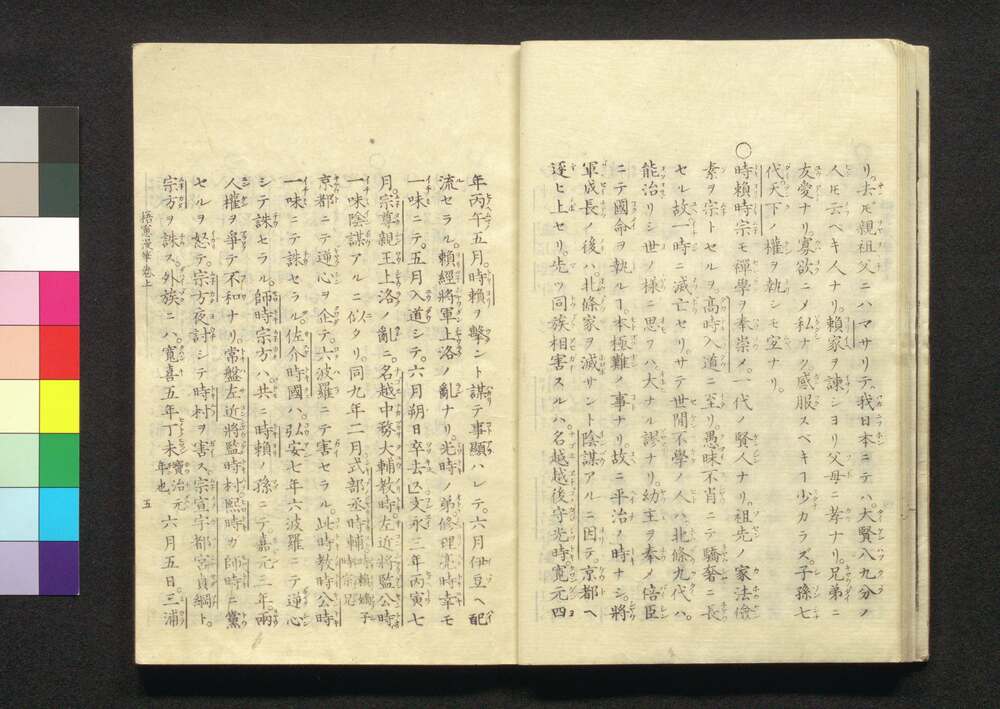 リ。去𪜈親祖父ニハマサリテ、我日本ニテハ、大賢八九分ノ
人𪜈云ベキ人ナリ。賴家ヲ諫シヨリ父母ニ孝ナリ。兄弟ニ
友愛ナリ寡欲ニメ私ナク感服スベキヿ少カラズ。子孫七
代天下ノ權ヲ執シモ宜ナリ。
○時賴時宗モ禪學ヲ奉崇メ。一代ノ賢人ナリ。祖先ノ家法儉
素ヲ宗トセルヲ。高時入道ニ至リ。愚昧不肖ニテ驕奢ニ長
セル故一時ニ滅亡セリ。サテ世間不學ノ人ハ、北條九代ハ。
能治リシ世ノ樣ニ思フハ、大ナル謬ナリ。幼主ヲ奉メ倍臣
ニテ國命ヲ執ルヿ。本極難ノ事ナリ。故ニ平治ノ時ナシ。將
軍成長ノ後ハ。北條家ヲ滅サント陰謀アルニ因テ。京都ヘ
逐ヒ上セリ。先ツ同族相害スルハ。名越越後守光時寬元四
年丙午五月。時賴ヲ擊ント謀テ事顯ハレテ。六月伊豆ヘ配
流セラル。賴經將軍上洛ノ亂ナリ。光時ノ弟修理亮時幸モ
一味ニテ。五月入道シテ。六月朔日卒去ス。文永三年丙寅七
月。宗尊親王上洛ノ亂ニ。名越中務大輔教時。左近將監公時
一味陰謀アルニ似タリ。同九年二月式部丞時輔時賴嬌子時宗兄
京都ニテ逆心ヲ企テ。六波羅ニテ害セラル。此時教時公時
一味ニテ誅セラル。佐介時國ハ。弘安七年六波羅ニテ逆心
シテ誅セラル。師時宗方ハ。共ニ時賴ノ孫ニテ。嘉元三年兩
人權ヲ爭テ不和ナリ。常盤左近將監時村煕時カ師時ニ黨
セルヲ怒テ。宗方夜討シテ時村ヲ害ス。宗宣宇都宮貞綱ト。
宗方ヲ誅ス。外族ニハ。寬喜五年丁未寶治元年也六月五日。三浦
梧窻漫筆卷上 五